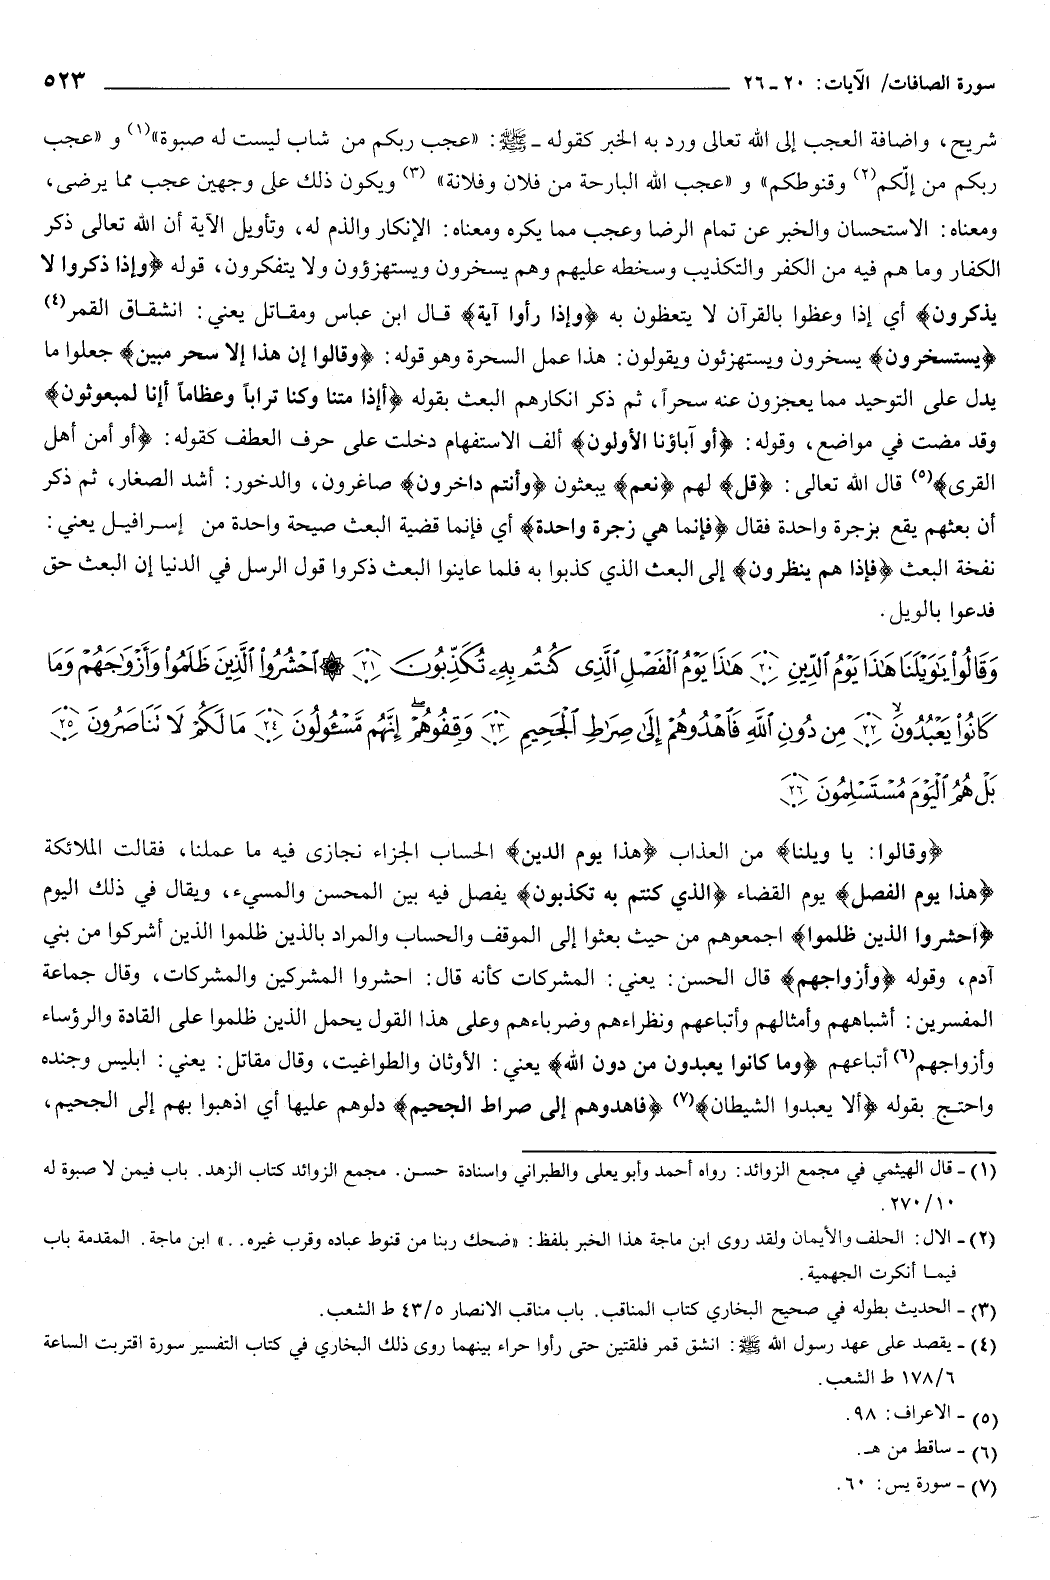 سورة الصافات/ الآيات: ٢٠ ـ ٢٦ ٥٢٣
شريح، واضافة العجب إلى الله تعالى ورد به الخبر كقوله ـ ﷺ: «عجب ربكم من شاب ليست له صبوة»(١) و «عجب
ربكم من إلّكم(٢) وقنوطكم» و «عجب الله البارحة من فلان وفلانة» (٣) ويكون ذلك على وجهين عجب مما يرضى،
ومعناه: الاستحسان والخبر عن تمام الرضا وعجب مما يكره ومعناه: الإنكار والذم له، وتأويل الآية أن الله تعالى ذكر
الكفار وما هم فيه من الكفر والتكذيب وسخطه عليهم وهم يسخرون ويستهزؤون ولا يتفكرون، قوله ﴿وإذا ذكروا لا
يذكرون﴾ أي إذا وعظوا بالقرآن لا يتعظون به ﴿وإذا رأوا آية﴾ قال ابن عباس ومقاتل يعني: انشقاق القمر(٤)
﴿يستسخرون﴾ يسخرون ويستهزئون ويقولون: هذا عمل السحرة وهو قوله: ﴿وقالوا إن هذا إلا سحر مبين﴾ جعلوا ما
يدل على التوحيد مما يعجزون عنه سحراً، ثم ذكر انكارهم البعث بقوله ﴿أإذا متنا وكنا تراباً وعظاماً أإنا لمبعوثون﴾
وقد مضت في مواضع، وقوله: ﴿أو آباؤنا الأولون﴾ ألف الاستفهام دخلت على حرف العطف كقوله: ﴿أو أمن أهل
القرى﴾(٥) قال الله تعالى: ﴿قل﴾ لهم ﴿نعم﴾ يبعثون ﴿وأنتم داخرون﴾ صاغرون، والدخور: أشد الصغار، ثم ذكر
أن بعثهم يقع بزجرة واحدة فقال ﴿فإنما هي زجرة واحدة﴾ أي فإنما قضية البعث صيحة واحدة من إسرافيل يعني:
نفخة البعث ﴿فإذا هم ينظرون﴾ إلى البعث الذي كذبوا به فلما عاينوا البعث ذكروا قول الرسل في الدنيا إن البعث حق
فدعوا بالويل.
وَقَالُوا۟ يَٰوَيْلَنَا هَٰذَا يَوْمُ ٱلدِّينِ ٢٠ هَٰذَا يَوْمُ ٱلْفَصْلِ ٱلَّذِى كُنتُم بِهِۦ تُكَذِّبُونَ ٢١ ۞ ٱحْشُرُوا۟ ٱلَّذِينَ ظَلَمُوا۟ وَأَزْوَٰجَهُمْ وَمَا
كَانُوا۟ يَعْبُدُونَ ٢٢ مِن دُونِ ٱللَّهِ فَٱهْدُوهُمْ إِلَىٰ صِرَٰطِ ٱلْجَحِيمِ ٢٣ وَقِفُوهُمْ إِنَّهُم مَّسْـُٔولُونَ ٢٤ مَا لَكُمْ لَا تَنَاصَرُونَ ٢٥
بَلْ هُمُ ٱلْيَوْمَ مُسْتَسْلِمُونَ ٢٦
﴿وقالوا: يا ويلنا﴾ من العذاب ﴿هذا يوم الدين﴾ الحساب الجزاء نجازى فيه ما عملنا، فقالت الملائكة
﴿هذا يوم الفصل﴾ يوم القضاء ﴿الذي كنتم به تكذبون﴾ يفصل فيه بين المحسن والمسيء، ويقال في ذلك اليوم
﴿احشروا الذين ظلموا﴾ اجمعوهم من حيث بعثوا إلى الموقف والحساب والمراد بالذين ظلموا الذين أشركوا من بني
آدم، وقوله ﴿وأزواجهم﴾ قال الحسن: يعني: المشركات كأنه قال: احشروا المشركين والمشركات، وقال جماعة
المفسرين: أشباههم وأمثالهم وأتباعهم ونظراءهم وضرباءهم وعلى هذا القول يحمل الذين ظلموا على القادة والرؤساء
وأزواجهم(٦) أتباعهم ﴿وما كانوا يعبدون من دون الله﴾ يعني: الأوثان والطواغيت، وقال مقاتل: يعني: ابليس وجنده
واحتج بقوله ﴿ألا يعبدوا الشيطان﴾(٧) ﴿فاهدوهم إلى صراط الجحيم﴾ دلوهم عليها أي اذهبوا بهم إلى الجحيم،
(١) ـ قال الهيثمي في مجمع الزوائد: رواه أحمد وأبو يعلى والطبراني واسنادة حسن. مجمع الزوائد كتاب الزهد. باب فيمن لا صبوة له
٢٧٠/١٠.
(٢) ـ الال: الحلف والأيمان ولقد روى ابن ماجة هذا الخبر بلفظ: «ضحك ربنا من قنوط عباده وقرب غيره..» ابن ماجة. المقدمة باب
فيما أنكرت الجهمية.
(٣) ـ الحديث بطوله في صحيح البخاري كتاب المناقب. باب مناقب الانصار ٤٣/٥ ط الشعب.
(٤) ـ يقصد على عهد رسول الله ﷺ: انشق قمر فلقتين حتى رأوا حراء بينهما روى ذلك البخاري في كتاب التفسير سورة اقتربت الساعة
١٧٨/٦ ط الشعب.
(٥) ـ الاعراف: ٩٨.
(٦) ـ ساقط من هـ.
(٧) ـ سورة يس: ٦٠.